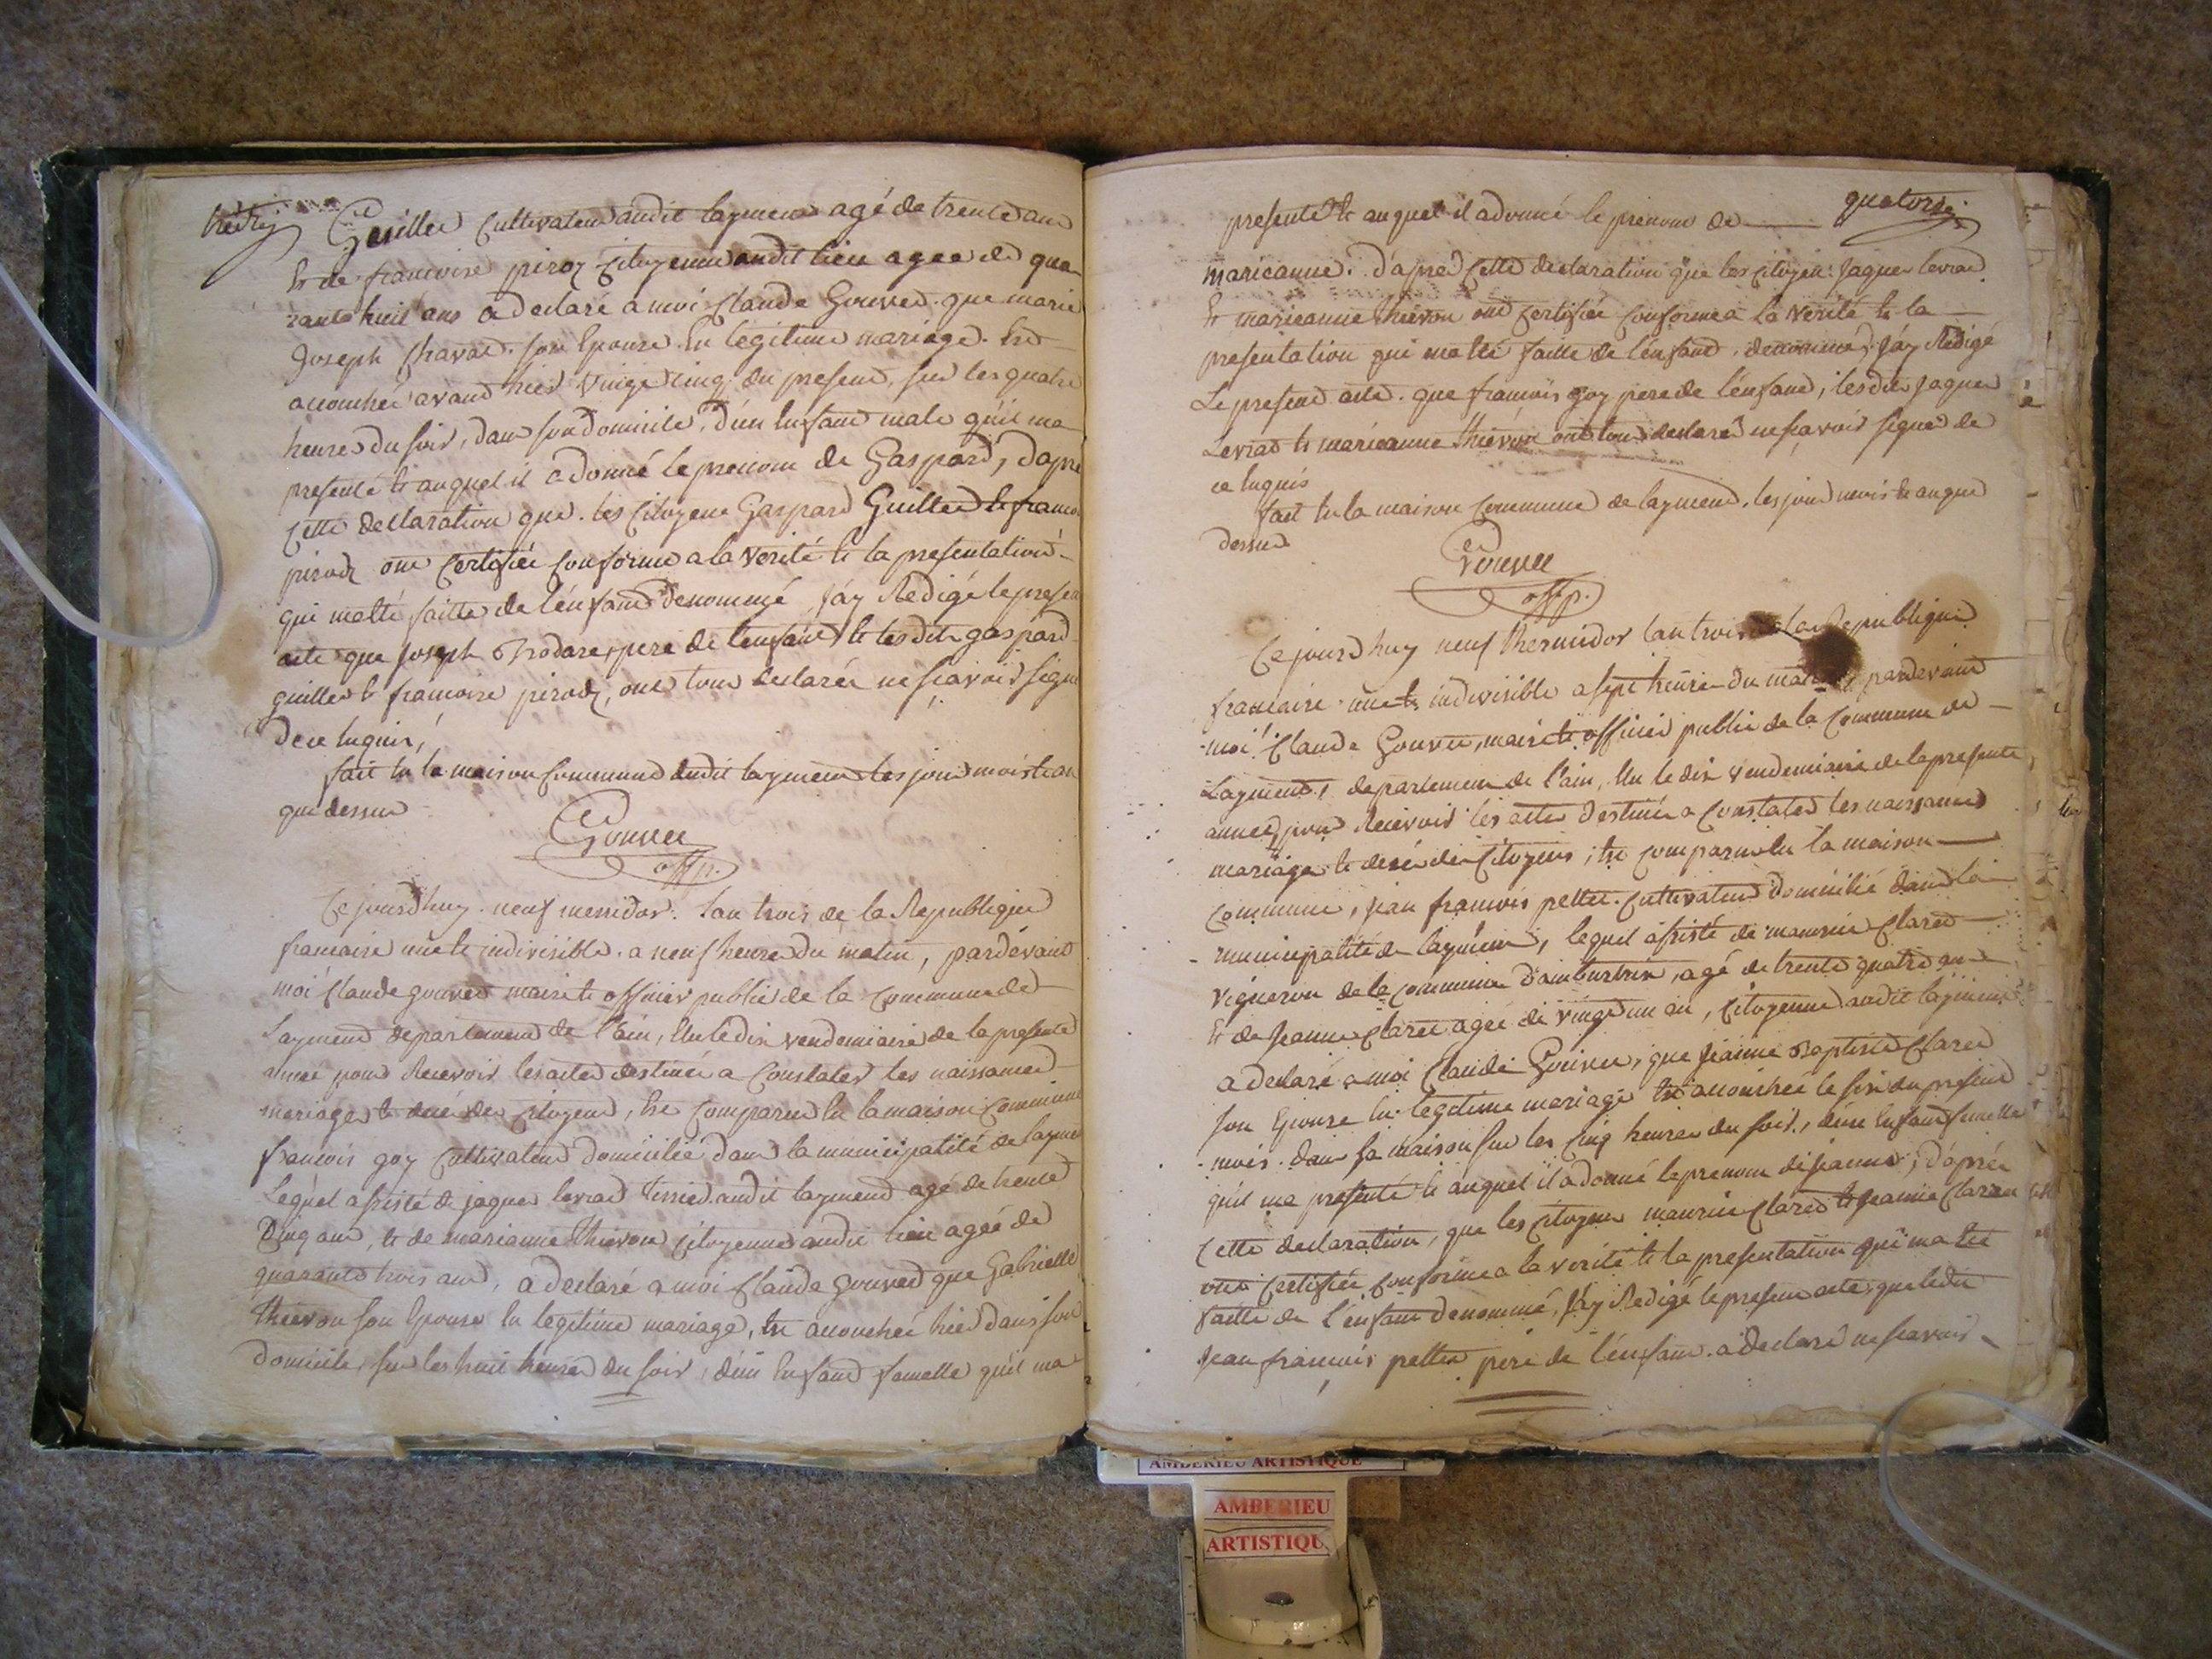 treize
Guilled Cultivateur audit laymend agé de trente ans
Et de francoise piroz Citoyenne audit lieu agee de qua
rante huit ans a declaré a moi Claude Gouvet que marie
Joseph Chavad son Epouse En legitime mariage Est
accouchée avand hier vingt cinq du present, sur les quatre
heures du soir, dans son domicile, d'un Enfand male quil ma
presenté et auquel il a donné le prenom de Gaspard, dapre
Cette declaration que les Citoyens Gaspard Guilled et francoi
piroz ont Certifiée conforme a la verité et la presentation
qui mat été faitte de l'enfand denommé J'ay Redigé le presen
acte que Joseph Brodare, pere de l'enfand et lesdits gaspard
guilled et francoise piroz, ont tous declarée ne scavoir signe
de ce Enquis,
fait En la maison Commune dudit laymend les jour mois et an
que dessus
Gouvet
off p.
Ce jourdhuy neuf messidor lan trois de la Republique
francaise une et indivisible a neuf heures du matin, pardevant
moi Claude gouvet maire et officier public de la Commune de
Laymend departement de l'ain, Elu le dix vendemiaire de la presente
année pour Recevoir les actes destinés a Constater les naissances
mariages et décé des Citoyens, Est Comparu En la maison Commune
francois goy Cultivateur domicilié dans la municipalité de laymen
Lequel assisté de jaques levrad audit laymend agé de trente
Cinq ans, et de marianne thievon Citoyenne audit lieu agée de
quarante trois ans, a declaré a moi Claude gouvet que Gabrielle
thievon son Epouse En legitime mariage, Est accouchée hier dans son
domicile, sur les huit heures du soir, d'un Enfand famelle quil ma
quatorze
presenté et auquel il a donné le prenom de
marieanne. d'apres Cette declaration que les Citoyens Jaques levrad
Et marieanne thievon ont Certifiée Conforme a la verité et la
presentation qui mat été faitte de l'enfand denommé, J'ay Redigé
Le present acte que francois goy pere de l'enfand, lesdits Jaques
Levrad et marieanne thievon ont tous declaré ne scavoir signé de
ce Enquis
fait En la maison Commune de laymend, les jour mois et an que
dessus
Gouvet
off p.
Ce jourd huy neuf thermidor lan trois de la Republique
francaise une et indivisible a sept heures du matin, pardevant
moi Claude Gouvet, maire et officier public de la Commune de
Laymend, departement de l'ain, Elu le dix vendemiaire de la presente
année, pour Recevoir les actes destinés a Constater les naissances
mariages et décé des Citoyens, Est comparu En la maison
Commune, jean francois pellet Cultivateur domicilié dans la
municipalité de laymend, lequel assisté de maurice Claret
vigneron de la Commune d'ambutrix, agé de trente quatre ans
Et de Jeanne Claret agée de vingt un an, Citoyenne audit laymend
a declaré a moi Claude Gouvet, que Jeanne Baptiste Claret
son Epouse En legitime mariage Est accouchée le six du present
mois dans sa maison sur les Cinq heures du soir, d'un Enfand femelle
quil ma presenté et auquel il a donné le prenom de jeanne, d'après
Cette declaration, que les Citoyens maurice Claret et Jeanne Claret
ont Certifiée Conforme a la verité et la presentation qui mat été
faitte de l'enfand denommé, J'ay Redigé le present acte, que ledit
Jean francois pellet pere de l'enfand a declaré ne scavoir
AMBERIEU ARTISTIQUE
AMBERIEU
ARTISTIQU